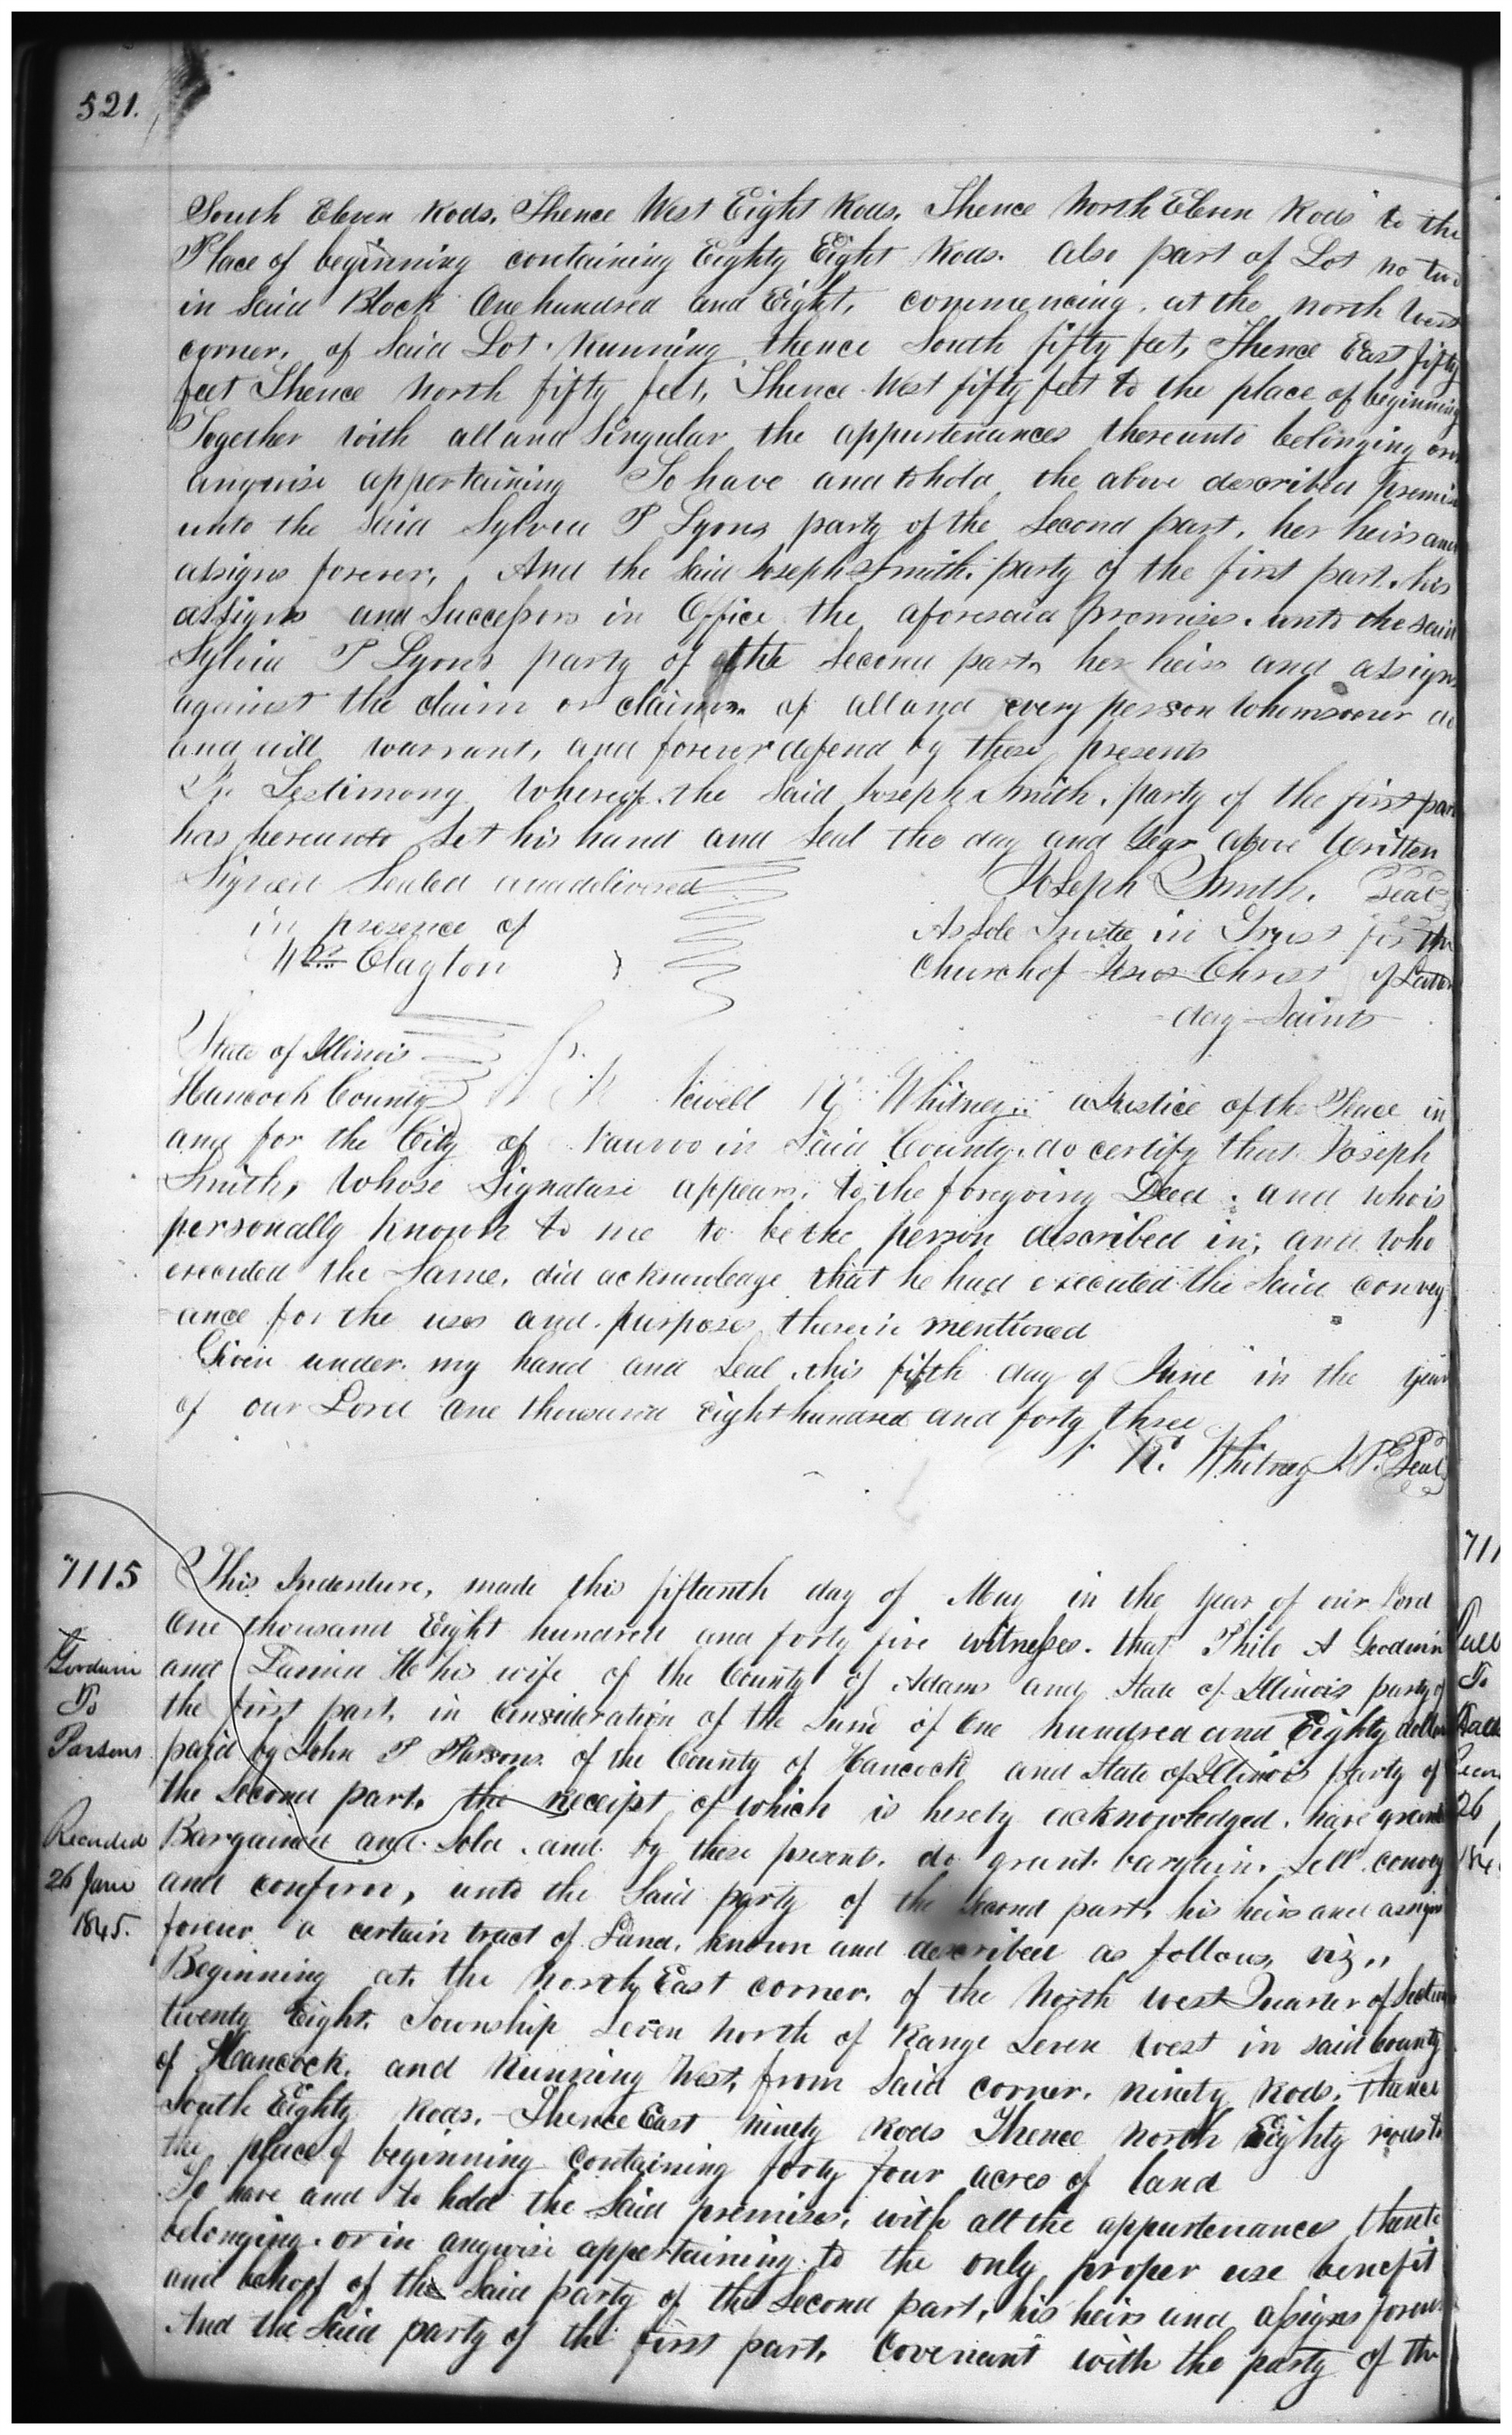 521.
South Eleven Rods. Thence West Eight Rods. Thence North Eleven Rods to the
Place of beginning containing Eighty Eight Rods. Also part of Lot no two
in Said Block One hundred and Eight, commencing at the north West
corner. of Said Lot. Running thence South fifty feet, Thence East fifty
feet Thence North fifty feet, Thence West fifty feet to the place of beginning
Together with all and Singular the appurtenances thereunto belonging or in
anywise appertaining To have and to hold the above described premises
unto the Said Sylvia P Lyons party of the Second part, her heirs and
assigns forever, And the Said Joseph Smith. party of the first part. his
assigns and Successors in Office the aforesaid premises. unto the said
Sylvia P Lyons party of the Second part, her heirs and assigns
against the claim or claims. of all and every person whomsoever do
and will warrant, and forever defend by these presents
In Testimony Whereof. the Said Joseph Smith, party of the first part
has hereunto Set his hand and Seal the day and Year above Written
Signed Sealed and delivered Joseph Smith. Seal
in presence of As Sole Trustee in Trust for the
Wm Clayton Church of Jesus Christ of Latter
day Saints
State of Illinois
Hancock County Newell K Whitney. a Justice of the Peace in
and for the City of Nauvoo in Said County. do certify that Joseph
Smith, Whose Signature appears. to the foregoing Deed. and who is
personally known to me to be the person described in, and who
executed the Same, did acknowledge that he had executed the Said convey
ance for the uses and purposes therein mentioned
Given under my hand and Seal this fifth day of June in the year
of our Lord One thousand Eight hundred and forty three
N. K. Whitney J.P. Seal
7115 This Indenture, made this fifteenth day of May in the year of our Lord
One thousand Eight hundred and forty five witnesses. that Philo A Goodwin
Goodwin and H his wife of the County of Adams and State of Illinois party of
To the first part, in Consideration of the Sum of One hundred and Eighty dollars
Parsons paid by John P Parsons of the County of Hancock and State of Illinois party of
the Second part, the receipt of which is hereby acknowledged. have granted
Recorded Bargained and Sold. and by these presents. do grant. bargain. Sell. convey
26 June and confirm, unto the Said party of the Second part, his heirs and assigns
1845. forever a certain tract of Land, known and described as follows, viz,,
Beginning at the North East corner. of the North West Quarter of Section
twenty Eight. Township Seven North of Range Seven West in said County
of Hancock. and Running West, from Said corner. ninety Rods. thence
South Eighty Rods. Thence East ninety Rods Thence North Eighty rods to
the place of beginning containing forty four acres of land
To have and to hold the Said premises, with all the appurtenances thereto
belonging. or in anywise appertaining. to the only proper use benefit
and behoof of the Said party of the Second part, his heirs and assigns forever
And the Said party of the first part, Covenant with the party of the